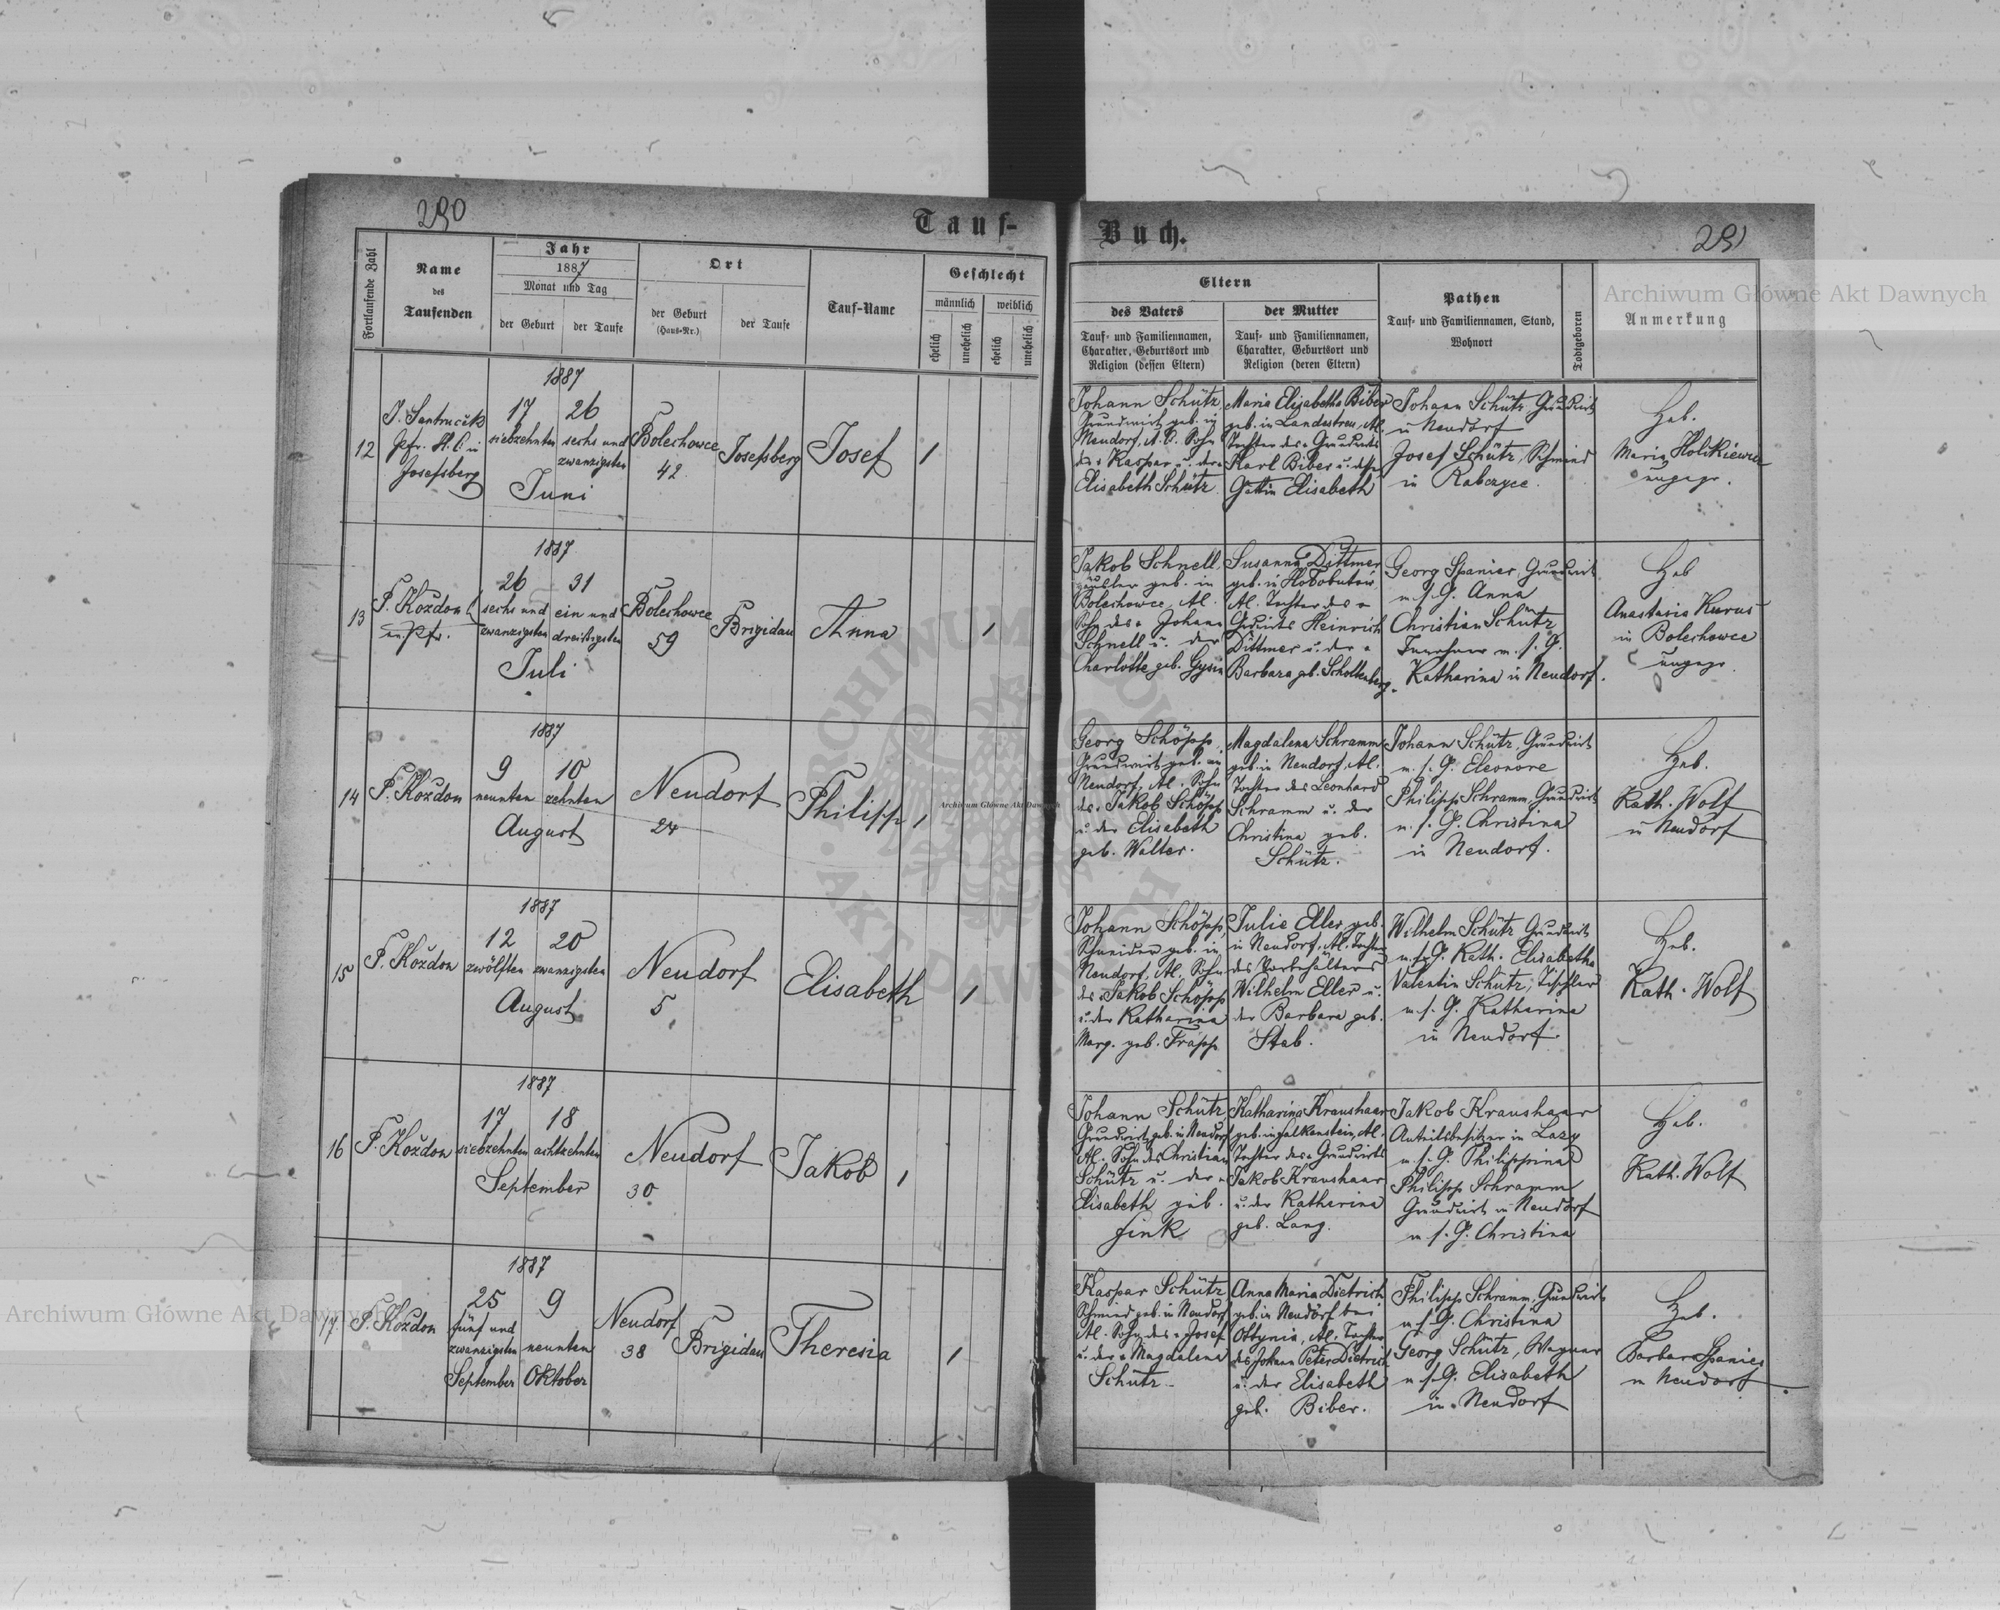 290
Tauf-
Fortlaufende Zahl
Name
des
Taufenden
Jahr
1887
Monat und Tag
der Geburt
der Taufe
Ort
der Geburt
(Haus-Nr.)
der Taufe
Tauf-Name
Geschlecht
männlich
weiblich
ehelich
unehelich
ehelich
unehelich
1887
12
J. Santrucik
17
26
siebzehnten
sechs und
zwanzigsten
Juni
Josefsberg
Bolechowce
42
Josefsberg
Josef
1
1887
13
F. Kozdon
26
31
sechs und
zwanzigsten
ein und
dreißigsten
Juli
Bolechowce
59
Brigidau
Anna
1
1887
14
F. Kozdon
9
10
neunten
zehnten
August
Neudorf
24
Philipp
1
1887
15
F. Kozdon
12
20
zwölften
zwanzigsten
August
Neudorf
5
Elisabeth
1
1887
16
F. Kozdon
17
18
siebzehnten
achtzehnten
September
Neudorf
30
Jakob
1
1887
17
F. Kozdon
25
9
fünf und
zwanzigsten
neunten
September
Oktober
Neudorf
38
Brigidau
Theresia
1
Buch.
291
Eltern
des Vaters
Tauf- und Familiennamen,
Charakter, Geburtsort und
Religion (dessen Eltern)
der Mutter
Tauf- und Familiennamen,
Charakter, Geburtsort und
Religion (deren Eltern)
Pathen
Tauf- und Familiennamen, Stand,
Wohnort
Todtgeboren
Anmerkung
Johann Schütz,
Grundwirt geb. in
Neudorf, A. C. Sohn
des Kaspar u. der
Elisabeth Schütz
Maria Elisabetha Biber
geb. in Landestreu, Al.
Tochter des Grundwirts
Karl Biber u. dessen
Gattin Elisabeth
Johann Schütz, Grundwirt
in Neudorf
Josef Schütz, Schmied
in Rabczyce.
Heb.
Maria Holikiewicz
ungepr.
Jakob Schnell,
geb. in
Bolechowce, Al.
Sohn des Johann
Schnell u. der
Charlotte geb. Gysin
Susanna Dittmer
geb. in Hobobutow,
Al. Tochter des
Heinrich
Dittmer u. der
Barbara geb. Schottenberg.
Georg Spanier, Grundwirt
u. s. G. Anna
Christian Schütz
u. s. G.
Katharina in Neudorf.
Heb
Anastasia Kurus
in Bolechowce
ungepr.
Georg Schöpp,
Grundwirt geb. in
Neudorf, Al. Sohn
des Jakob Schöpp
u. der Elisabeth
geb. Walter.
Magdalena Schramm
geb. in Neudorf, Al.
Tochter des Leonhard
Schramm u. der
Christina geb.
Schütz.
Johann Schütz, Grundwirt
u. s. G. Eleonore
Philipp Schramm, Grundwirt
u. s. G. Christina
in Neudorf.
Heb.
Kath. Wolf
in Neudorf
Johann Schöpp,
Schneider geb. in
Neudorf, Al. Sohn
des Jakob Schöpp
u. der Katharina
Marg. geb. Frapp
Julie Eller, geb.
in Neudorf, Al. Tochter
des Vorbehälters
Wilhelm Eller u.
der Barbara geb.
Stab.
Wilhelm Schütz Grundwirt
u. s. G. Kath. Elisabetha
Valentin Schütz, Tischler
u. s. G. Katharina
in Neudorf.
Heb.
Kath. Wolf
Johann Schütz,
Grundwirt, geb. in Neudorf
Al. Sohn des Christian
Schütz u. der
Elisabeth geb.
Fink
Katharina Kraushaar
geb. in Falkenstein, Al.
Tochter des Grundwirts
Jakob Kraushaar
u. der Katharina
geb. Lang.
Jakob Kraushaar
Anteilsbesitzer in Lazy
u. s. G. Philippina
Philipp Schramm
Grundwirt in Neudorf
u. s. G. Christina
Heb.
Kath. Wolf
Kaspar Schütz
Schmied geb. in Neudorf
Al. Sohn des Josef
u. der Magdalena
Schütz
Anna Maria Dietrich
geb. in Neudorf bei
Ottynia, Al. Tochter
des Johann Peter Dietrich
u. der Elisabeth
geb. Biber.
Philipp Schramm, Grundwirt
u. s. G. Christina
Georg Schütz, Wagner
u. s. G. Elisabeth
in Neudorf
Heb.
Barbara Spanier
in Neudorf.
Archiwum Główne Akt Dawnych
Archiwum Główne Akt Dawnych
Archiwum Główne Akt Dawnych